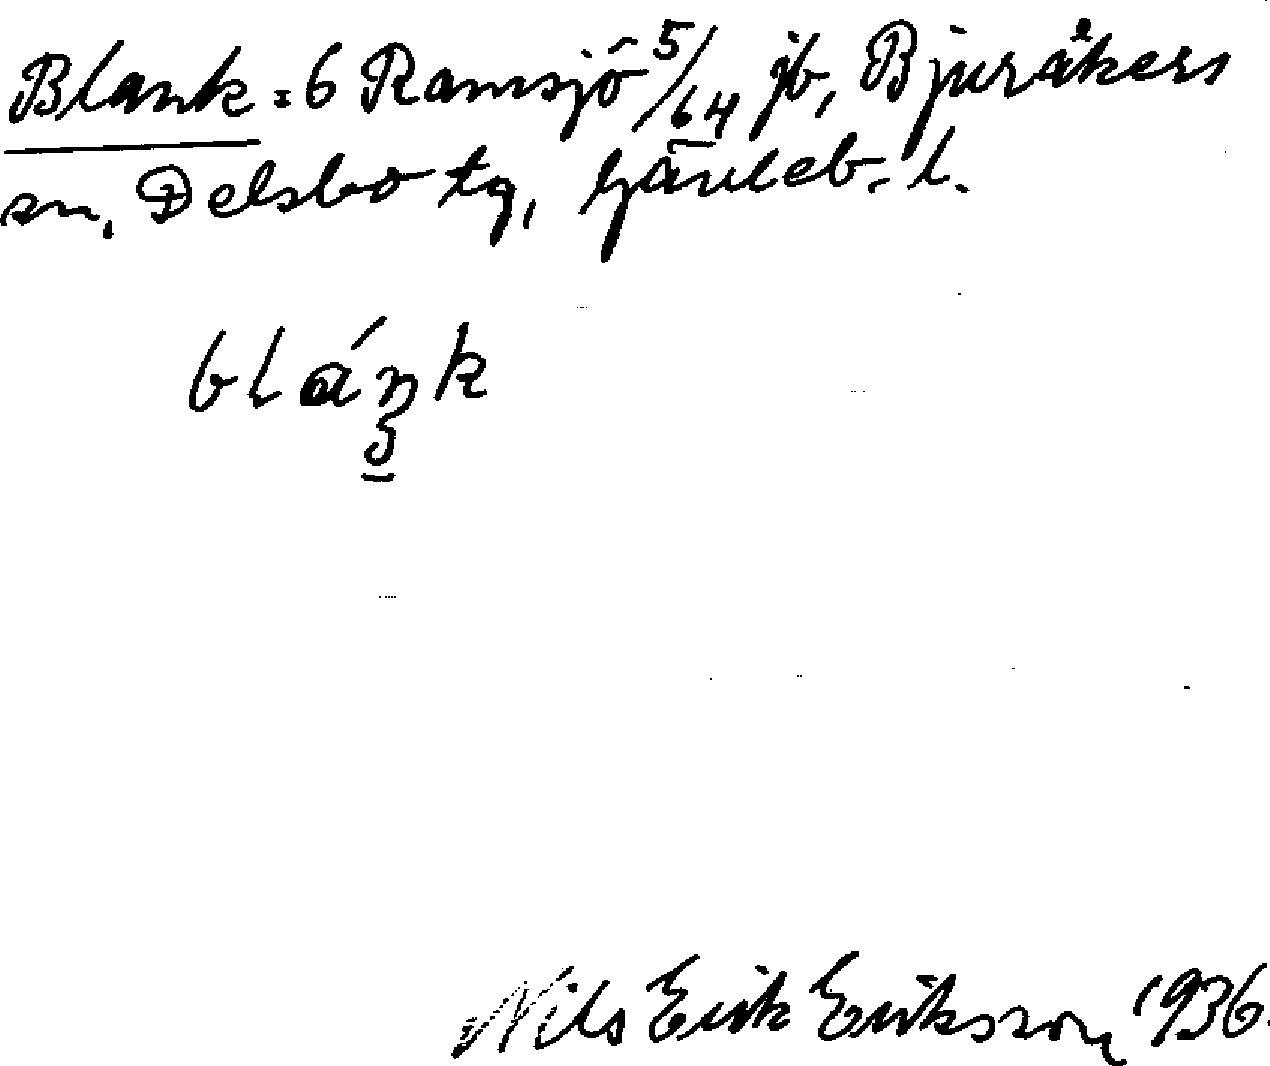 Blank = 6 Ramsjö 5/64 jb, Bjuråkers
sn, Delsbo tg, Gävleb. l.
blánk
Nils Erik Eriksson 1936.